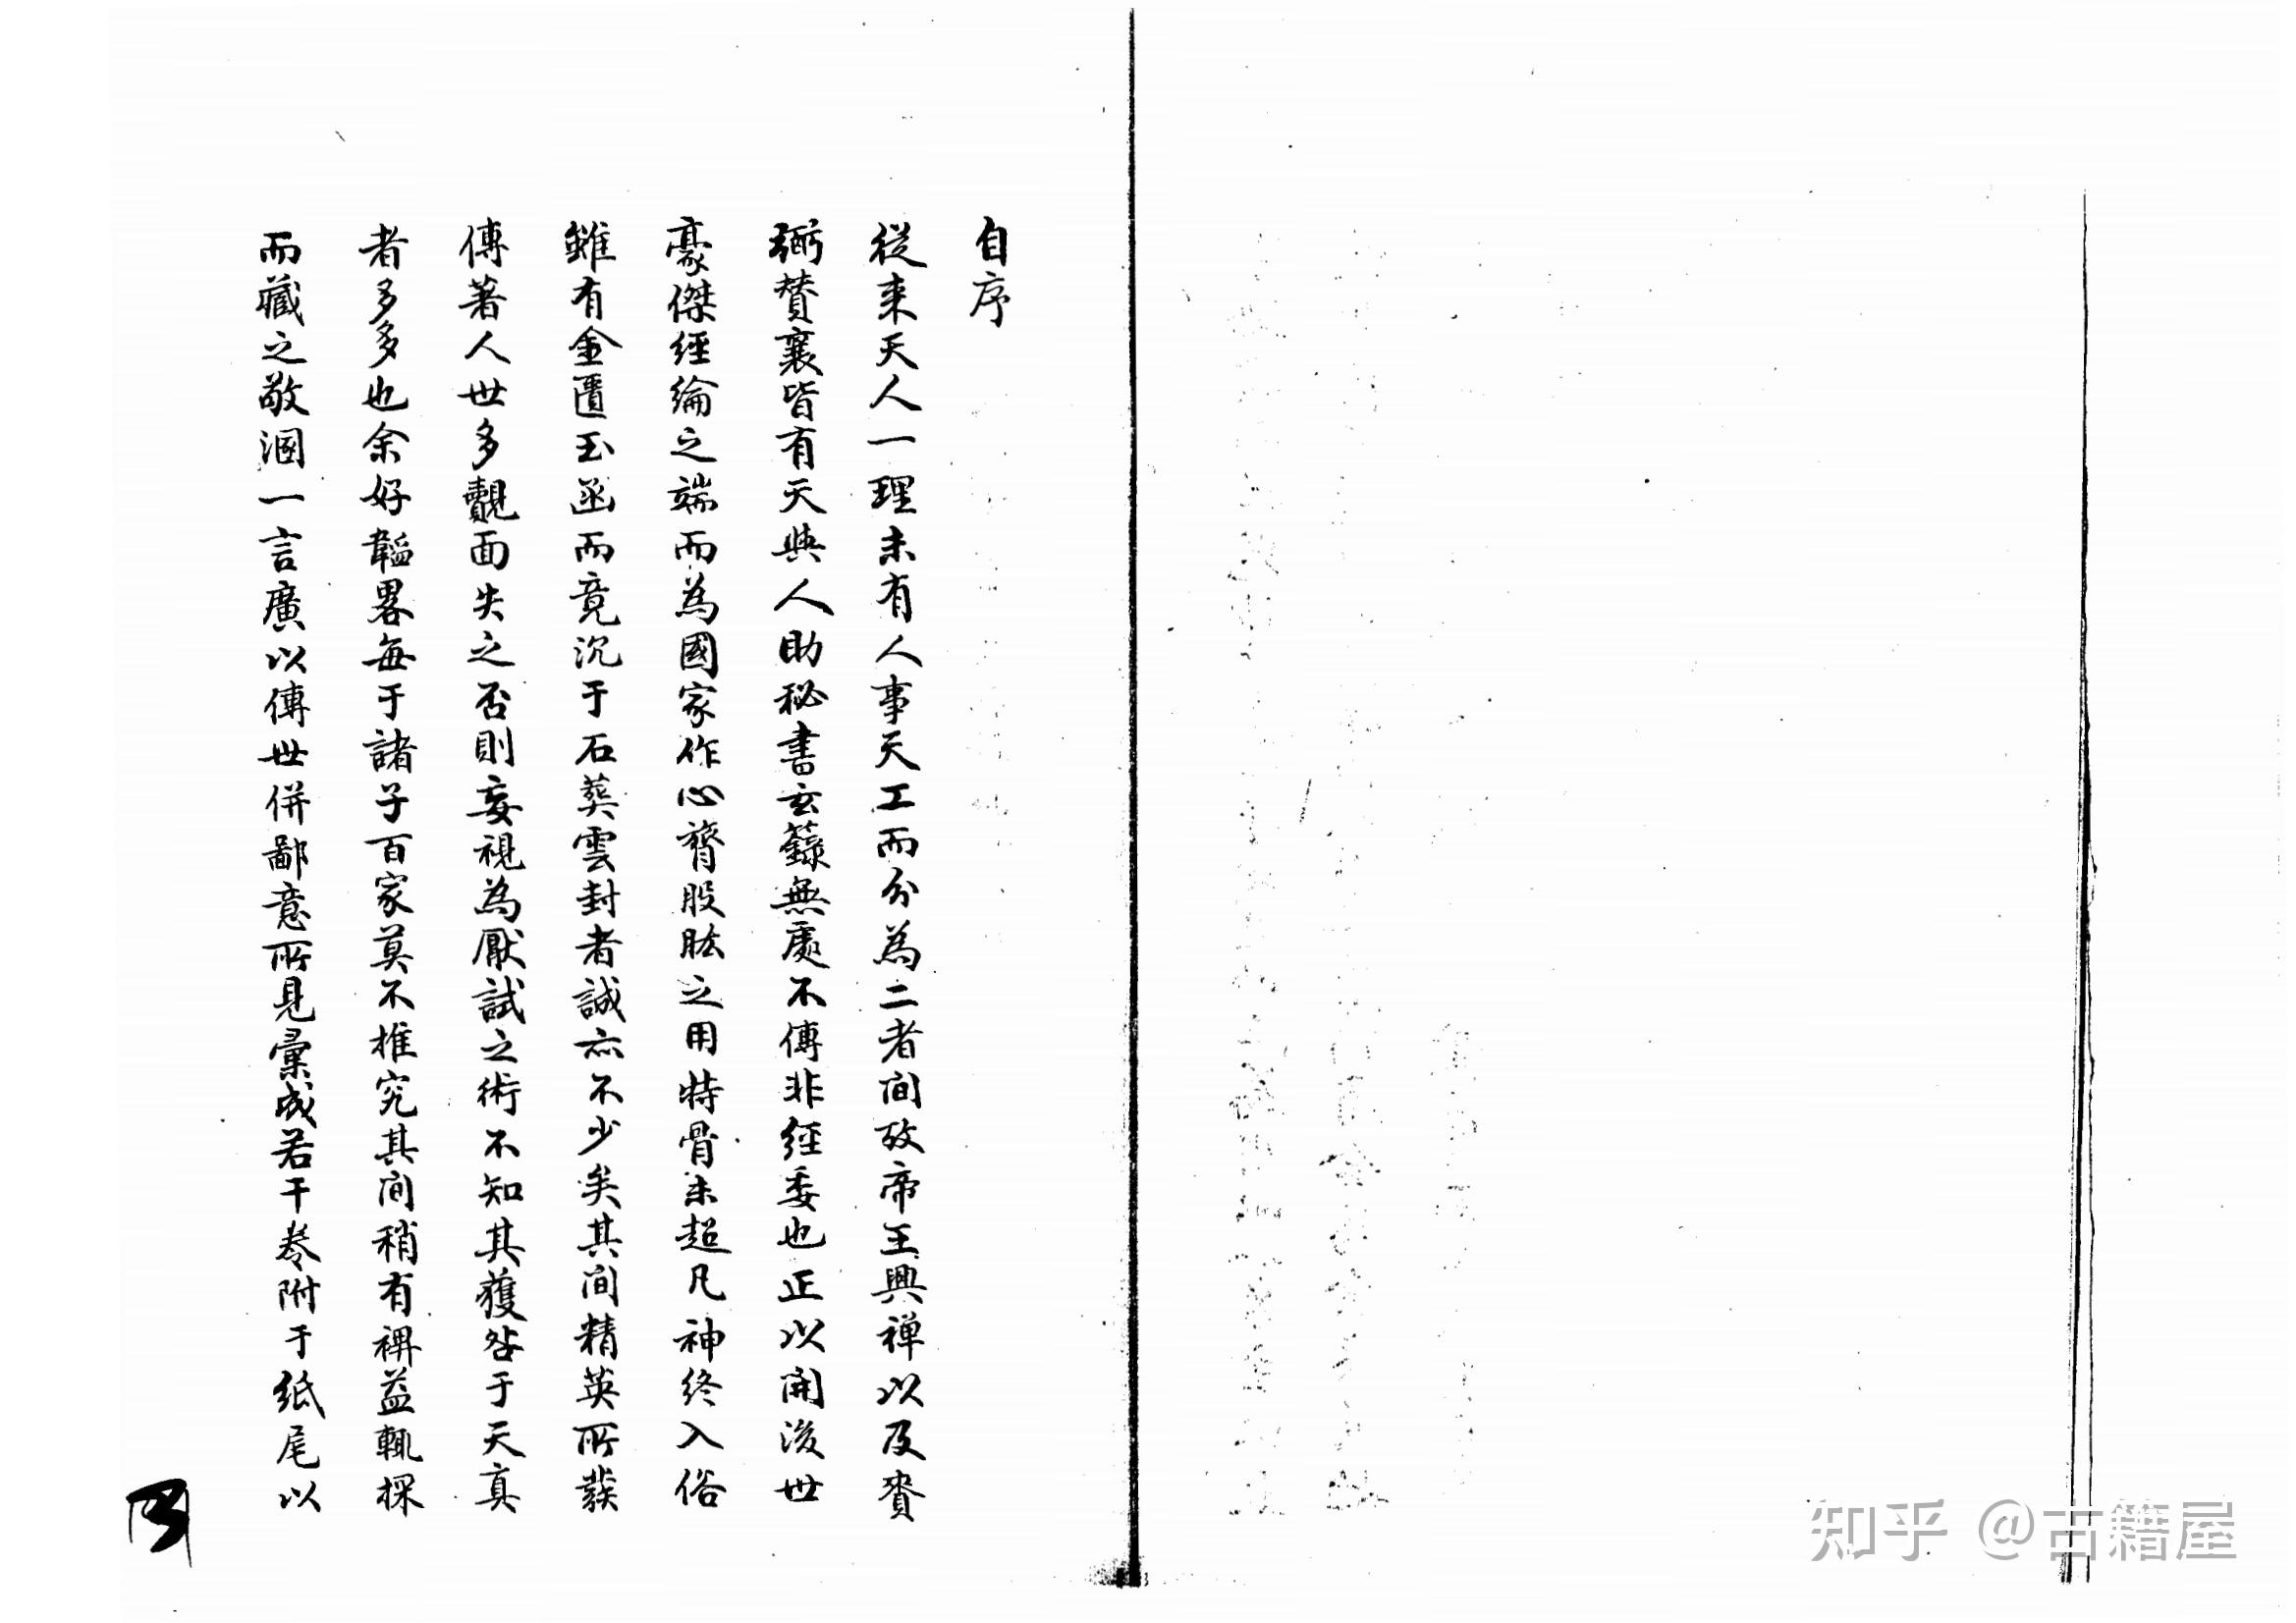 自序
從来天人一理未有人事天工而分為二者间攷帝王興禅以及賚
弼賛襄皆有天與人助秘書玄籙無處不傳非經委也正以開後世
豪傑經綸之端而為國家作心膂股肱之用特骨未超凡神终入俗
雖有金匱玉函而竟沉于石葬雲封者誠亦不少矣其间精英所發
傳著人世多覿面失之否則妄視為厭試之術不知其獲咎于天真
者多多也余好韜畧每于諸子百家莫不推究其间稍有裨益輒採
而藏之敬溷一言廣以傳世併鄙意所見彙成若干卷附于紙尾以
知乎 @古籍屋